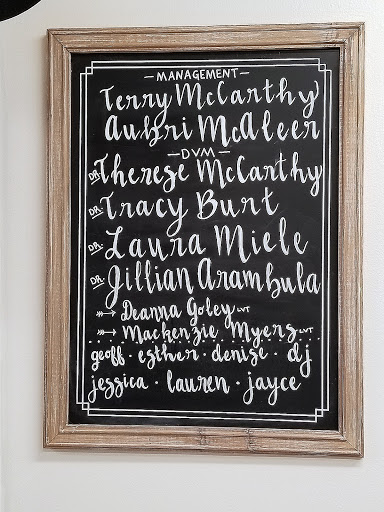 —MANAGEMENT—
Terry McCarthy
Aubri McAleer
—DVM—
DR. Therese McCarthy
DR. Tracy Burt
DR. Laura Miele
DR. Jillian Arambula
→ Deanna Goley LVT
→ Mackenzie Myers LVT
geoff · esther · denise · dj
jessica · lauren · jayce